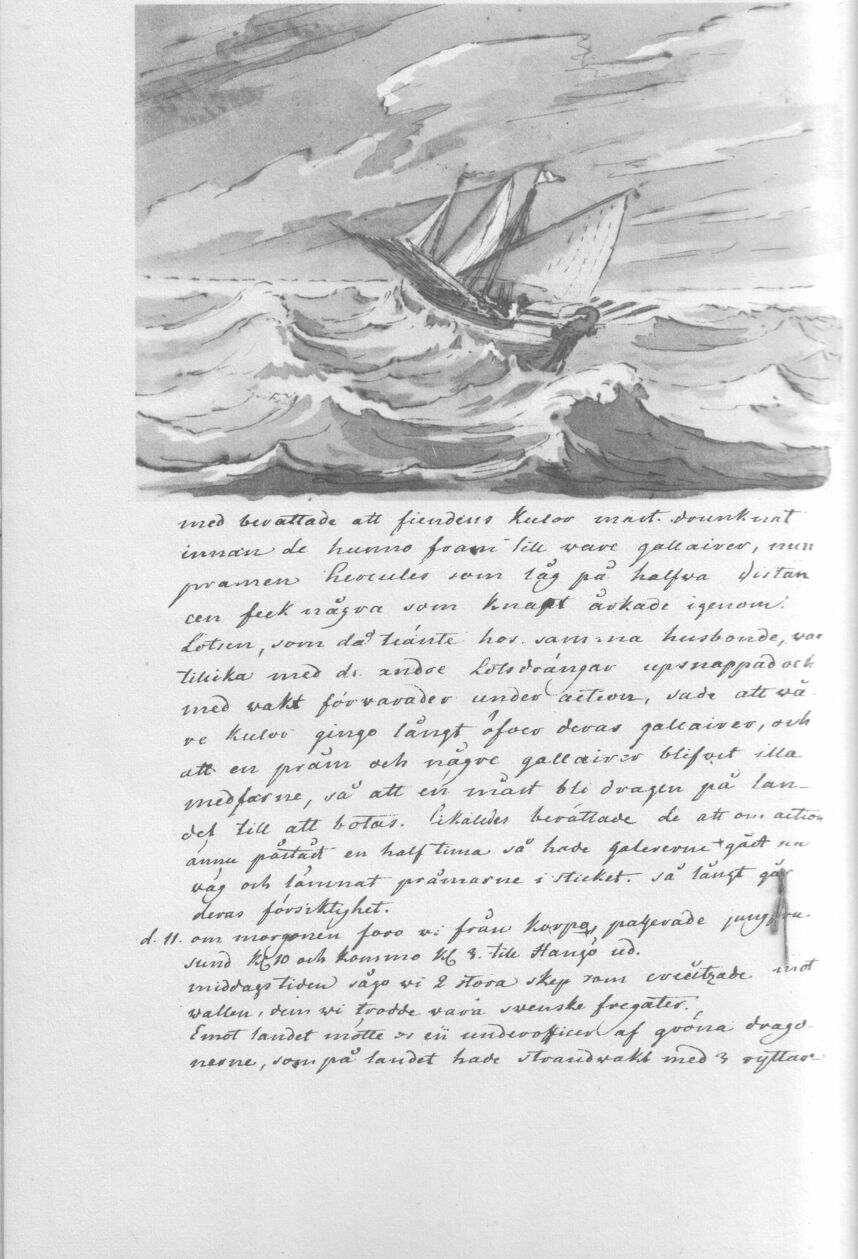 med berättade att fiendens Kulor mäst. drunknat
innan de hunno fram till wåre gallairer, men
pramen Hercules som låg på halfwa distan
cen feck några som knapt årkade igenom.
Lotsen, som då tiänte hos samma husbonde, war
tillika med de andre Lotsdrängar upsnappad och
med wakt förwarader under action, sade att wå-
re Kulor gingo långt öfwer deras gallairer, och
att en präm och några gallairer blifwit illa
medfarne, så att en mäst bli dragen på lan-
det till att botas. Likaledes berättade de att om action
ännu påstått en half tima så hade galererne gått sin
väg och lämnat pråmarne i sticket. så långt går
deras försiktighet.
d. 11. om morgonen foro wi från Korpo, paszerade jungfru
sund Kl 10 och kommo Kl 3. till Hangö ud.
middagstiden sågo wi 2 stora skep som creützade mot
wallen, dem wi trodde vara swenske fregater.
Emot landet mötte os en underofficer af gröna drago-
nerne, som på landet hade strandwakt med 3 ryttare